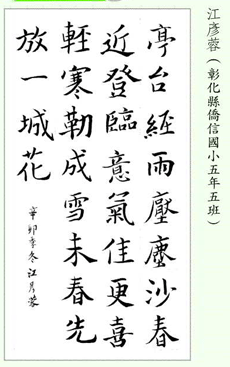 江彥蓉（彰化縣僑信國小五年五班）
亭台經雨壓塵沙春
近登臨意氣佳更喜
輕寒勒成雪未春先
放一城花
辛卯季冬江彥蓉